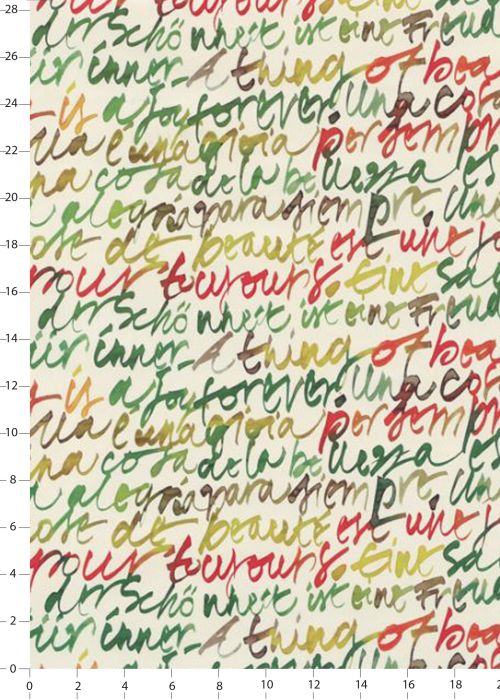 28
26
24
22
20
18
16
14
12
10
8
6
4
2
0
der Schönheit ist eine Freud
ür immer - A thing of bea
is a joy forever. Una cos
lla è una gioia per sempr
na cosa de la belleza es
a alegría para siempre. Un
ose de beauté est une j
pour toujours. Eine Sa
der Schönheit ist eine Freud
ür immer - A thing of bea
is a joy forever. Una cos
lla è una gioia per sempr
na cosa de la belleza es
a alegría para siempre. Un
ose de beauté est une j
pour toujours. Eine Sa
der Schönheit ist eine Freud
ür immer - A thing of bea
0 2 4 6 8 10 12 14 16 18